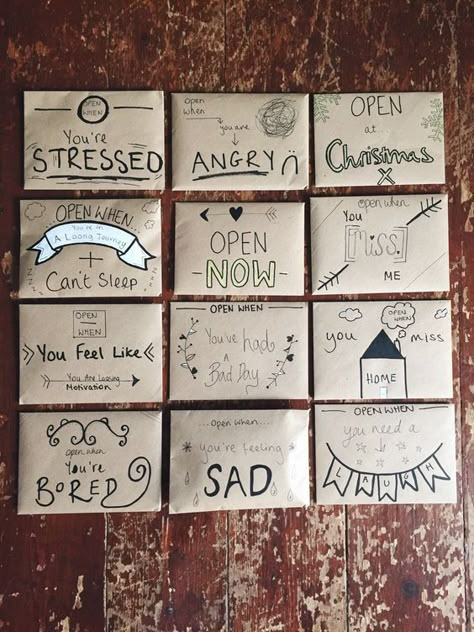 OPEN
WHEN
You're
STRESSED
open
when
you are
ANGRY
OPEN
at
Christmas
X
OPEN WHEN...
You're in
A Looong Journey
+
Can't Sleep
OPEN
NOW
open when
You
Miss
ME
OPEN
WHEN
You Feel Like
You Are Loosing
Motivation
OPEN WHEN
You've had
A
Bad Day
OPEN
WHEN
you miss
HOME
open when
You're
BORED
...open when...
you're feeling
SAD
OPEN WHEN
you need a
LAUGH